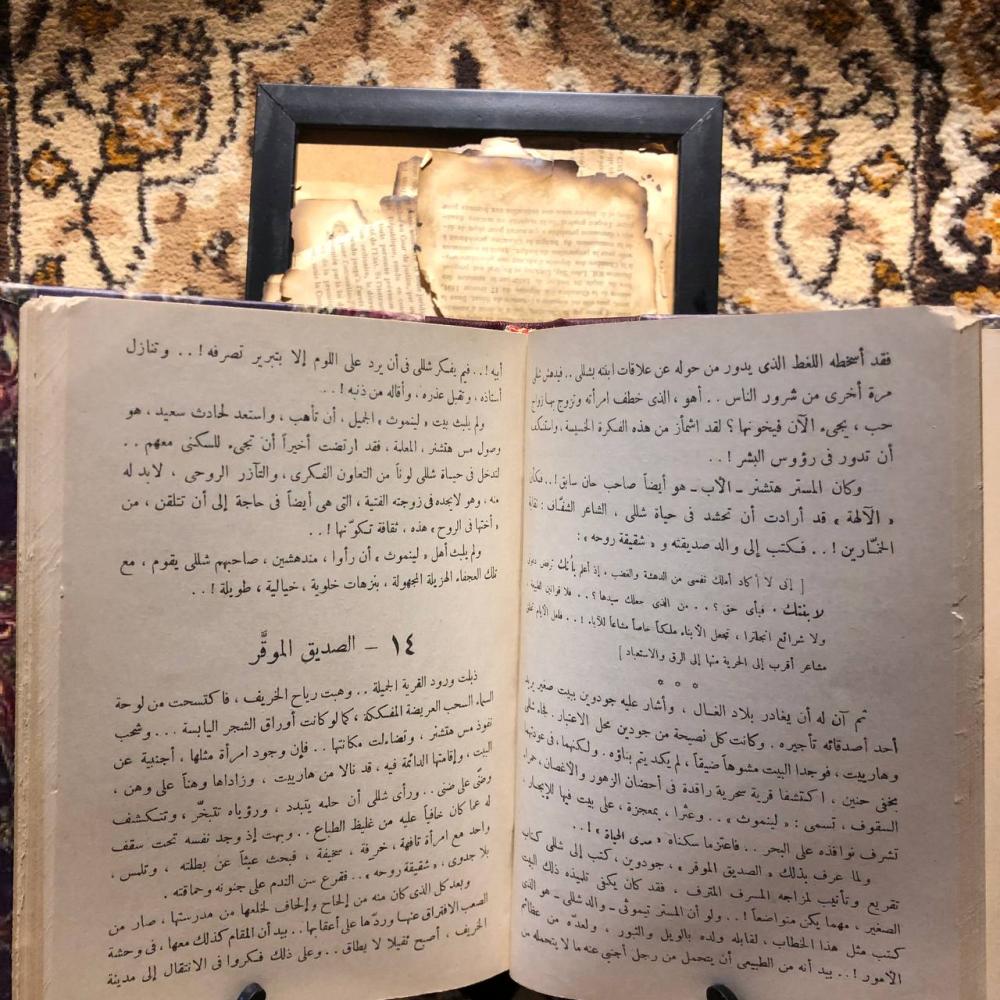 فقد أسخطه اللغط الذى يدور من حوله عن علاقات ابنته بشللى . . فيدهش شللى
مرة أخرى من شرور الناس . . أهو ، الذى خطف امرأته وتزوج بها زواج
حب ، يجىء الآن فيخونها ؟ لقد اشمأز من هذه الفكرة الخسيسة ، واستنكف
أن تدور فى رؤوس البشر ! . .
وكان المستر هتشنر ــ الأب ــ هو أيضاً صاحب حان سابق ! . . فكأن
« الآلهة » قد أرادت أن تحشد فى حياة شللى ، الشاعر الشفّاف :
الخمّارين ! . . فكتب إلى والد صديقته و « شقيقة روحه » :
[ إنى لا أكاد أملك نفسى من الدهشة والغضب ، إذ أعلم بأنك ترفض
لابنتك . فبأى حق ؟ . . من الذى جعلك سيدها ؟ . . فلا قوانين الطبيعة ،
ولا شرائع انجلترا ، تجعل الأبناء ملكاً خاصاً مشاعاً للآباء ! . .
مشاعر أقرب إلى الحرية منها إلى الرق والاستعباد ]
* * *
ثم آن له أن يغادر بلاد الغال ، وأشار عليه جودوين ببيت صغير يريد
أحد أصدقائه تأجيره . وكانت كل نصيحة من جودوين محل الاعتبار . فجاء شللى
وهارييت ، فوجدا البيت مشوهاً ضيقاً ، لم يكد يتم بناؤه . ولكنهما ، فى عودتهما
بخفى حنين ، اكتشفا قرية سحرية راقدة فى أحضان الزهور والأغصان ،
السقوف ، تسمى : « لينموث » . . وعثرا ، بمعجزة ، على بيت فيها للإيجار ،
تشرف نوافذه على البحر . . فاعتزما سكناه « مدى الحياة » ! . .
ولما عرف بذلك « الصديق الموقر » ، جودوين ، كتب إلى شللى كتاب
تقريع وتأنيب لمزاجه المسرف المترف . فقد كان يكفى تلميذه ذلك البيت
الصغير ، مهما يكن متواضعاً ! . . ولو أن المستر تيموثى ــ والد شللى ــ هو الذى
كتب مثل هذا الخطاب ، لقابله ولده بالويل والثبور ، ولعدّه من عظائم
الأمور ! . . بيد أنه من الطبيعى أن يتحمل من رجل أجنبى عنه ما لا يتحمله من
أبيه ! . . فيم يفكر شللى فى أن يرد على اللوم إلا بتبرير تصرفه ! . . وتنازل
أستاذه ، وتقبل عذره ، وأقاله من ذنبه ! . .
ولم يلبث بيت « لينموث » الجميل ، أن تأهب ، واستعد لحادث سعيد ، هو
وصول مس هتشنر ، المعلمة ، فقد ارتضت أخيراً أن تجىء للسكنى معهم . .
لتدخل فى حياة شللى لوناً من التعاون الفكرى ، والتآزر الروحى ، لابد له
منه ، وهو لا يجده فى زوجته الفتية ، التى هى أيضاً فى حاجة إلى أن تتلقن ، من
« أختها فى الروح » هذه ، ثقافة تكوّنها ! . .
ولم يلبث أهل « لينموث » أن رأوا ، مندهشين ، صاحبهم شللى يقوم ، مع
تلك العجفاء الهزيلة المجهولة ، بنزهات خلوية ، خيالية ، طويلة ! . .
١٤ ــ الصديق الموقَّر
ذبلت ورود القرية الجميلة . . وهبت رياح الخريف ، فاكتسحت من لوحة
السماء السحب العريضة المفككة ، كما لو كانت أوراق الشجر اليابسة . . . وشحب
نفوذ مس هتشنر ، وتضاءلت مكانتها . . فإن وجود امرأة مثلها ، أجنبية عن
البيت ، وإقامتها الدائمة فيه ، قد نالا من هارييت ، وزاداها وهناً على وهن ،
وضنًى على ضنى . . ورأى شللى أن حلمه يتبدد ، ورؤياه تتبخّر ، وتتكشف
له عما كان خافياً عليه من غليظ الطباع . . وبهت إذ وجد نفسه تحت سقف
واحد مع امرأة تافهة ، خرفة ، سخيفة ، فبحث عبثاً عن بطلته ، وتلمس ،
بلا جدوى ، « شقيقة روحه » . . فقرع سن الندم على جنونه وحماقته .
وبعد كل الذى كان منه من إلحاح وإلحاف لخلعها من مدرستها ، صار من
الصعب الافتراق عنها وردّها على أعقابها . . بيد أن المقام كذلك معها ، فى وحشة
الخريف ، أصبح ثقيلا لا يطاق . . وعلى ذلك فكروا فى الانتقال إلى مدينة